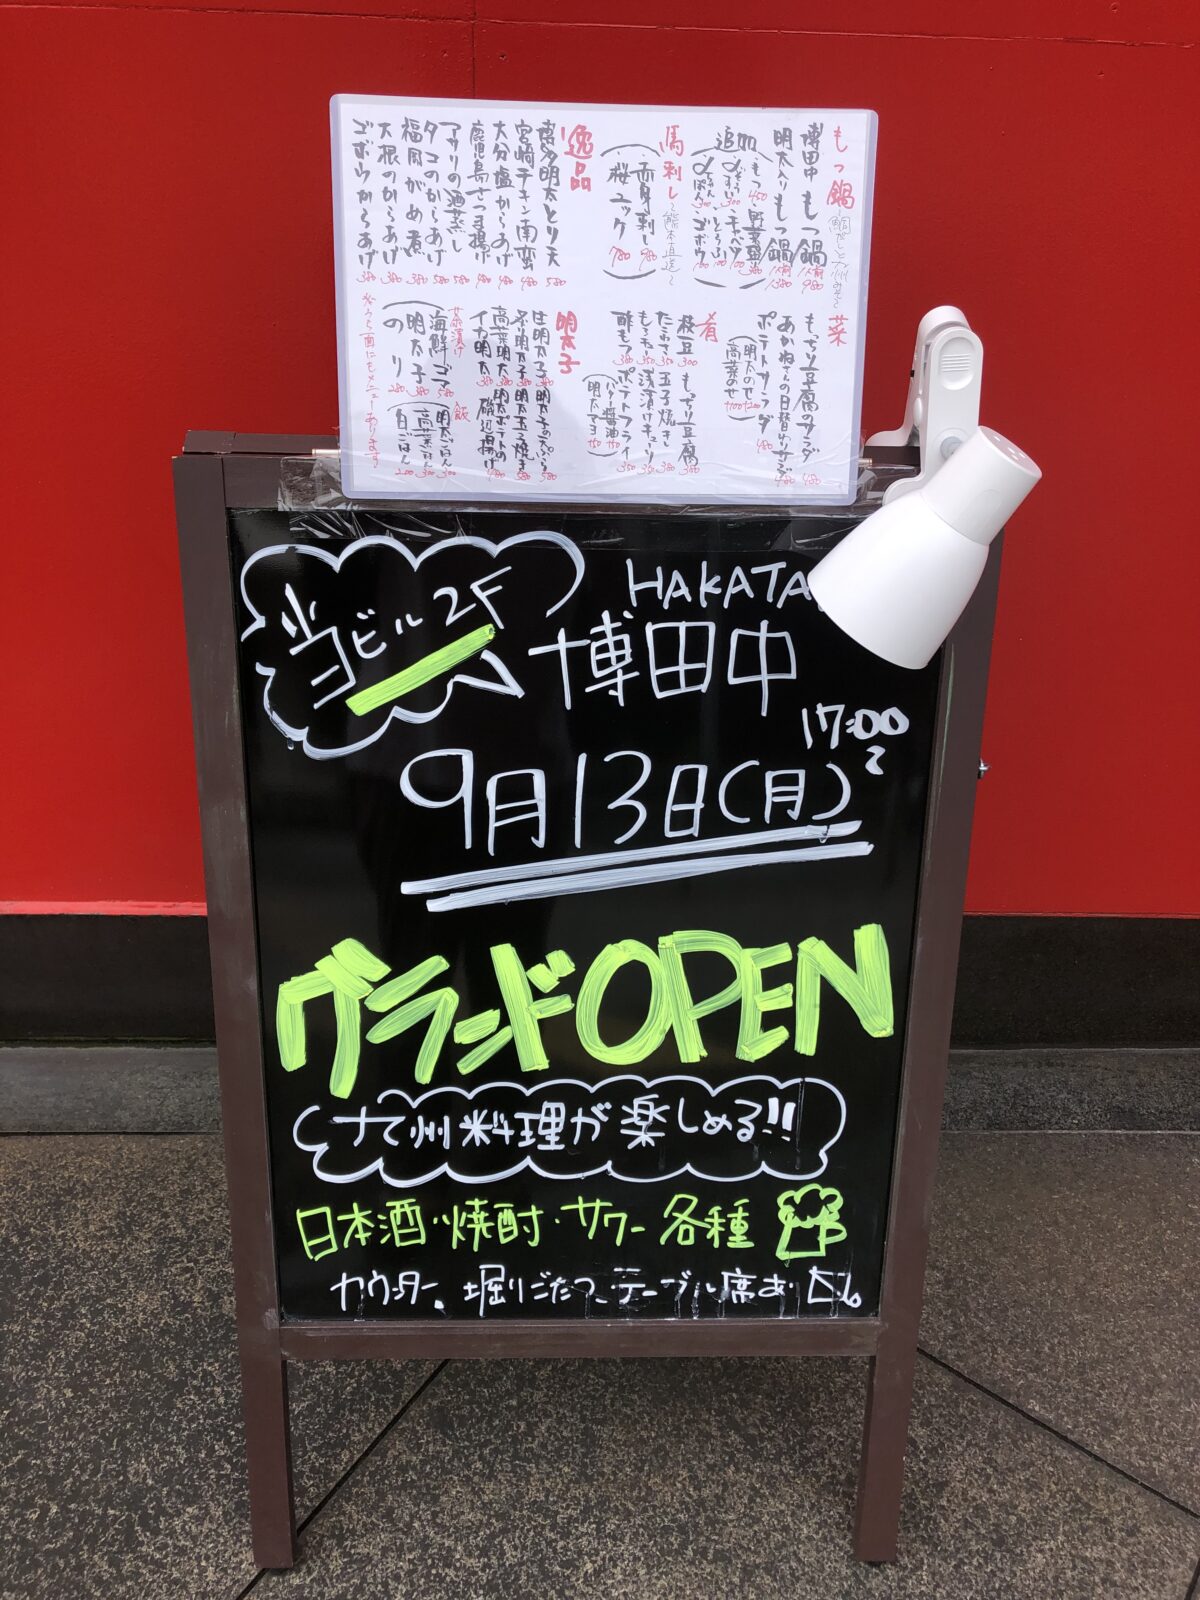 もつ鍋
博田中もつ鍋 1人前 980
明太入りもつ鍋 1人前 1380
追加
もつ 450
野菜盛 380
キャベツ 100
とうふ 100
ゴボウ 100
馬刺し〜熊本直送〜
赤身刺し 980
桜ユッケ 780
逸品
博多明太とり天 580
宮崎チキン南蛮 480
大分塩からあげ 480
鹿児島さつま揚げ 480
アサリの酒蒸し 580
タコのからあげ 580
福岡がめ煮 380
大根のからあげ 380
ゴボウからあげ 380
菜
もっちり豆腐のサラダ 480
あかねさんの日替わりサラダ 480
ポテトサラダ 480
明太のせ +200
高菜のせ +100
肴
枝豆 300
もっちり豆腐 300
たこわさ 350
玉子焼き 380
もろきゅー 350
浅漬けキューリ 350
酢もつ 380
ポテトフライ 350
バター醤油 +50
明太マヨ +50
明太子
生明太子 380
明太子の天ぷら 580
炙り明太子 380
明太玉子焼き 580
高菜明太 380
明太ポテトの磯辺揚げ 480
イカ明太 380
茶漬け
海鮮ゴマ 580
明太子 380
のり 280
飯
明太ごはん 300
高菜ごはん 300
白ごはん 200
※うら面にもメニューあります
当ビル2F
HAKATA
博田中
17:00〜
9月13日(月)
グランドOPEN
九州料理が楽しめる!!
日本酒・焼酎・サワー各種
カウンター、堀りごたつ、テーブル席あり